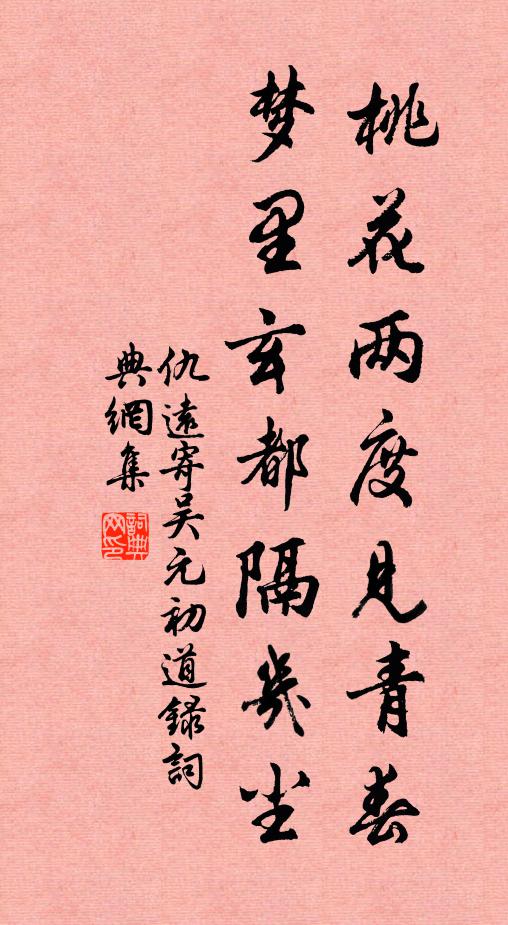 桃花两度见青春
梦里玄都隔几尘
仇遠寄吴元初道録詞
典網集
詞典網印